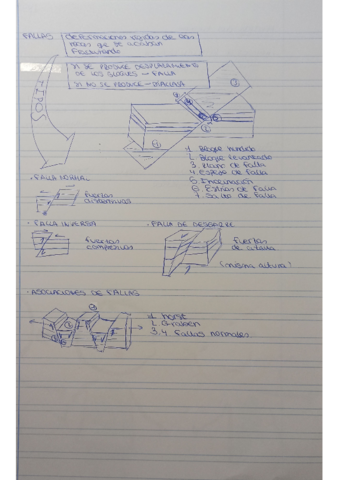 FALLAS
deformaciones rígidas de las
rocas que se
Fracturando
SI SE PRODUCE DESPLAZAMIENTO
DE LOS BLOQUES - FALLA
SI NO SE PRODUCE - DIACLASA
TIPOS
1. Bloque hundido
2. Bloque levantado
3. Plano de falla
4. Espejo de falla
5. Inclinación
6. Estrías de falla
7. Salto de falla
· FALLA NORMAL
fuerzas
distensivas
· FALLA INVERSA
fuerzas
compresivas
· FALLA DE DESGARRE
fuerzas
de cizalla
(misma altura)
· ASOCIACIONES DE FALLAS
1. horst
2. Graben
3, 4 Fallas normales